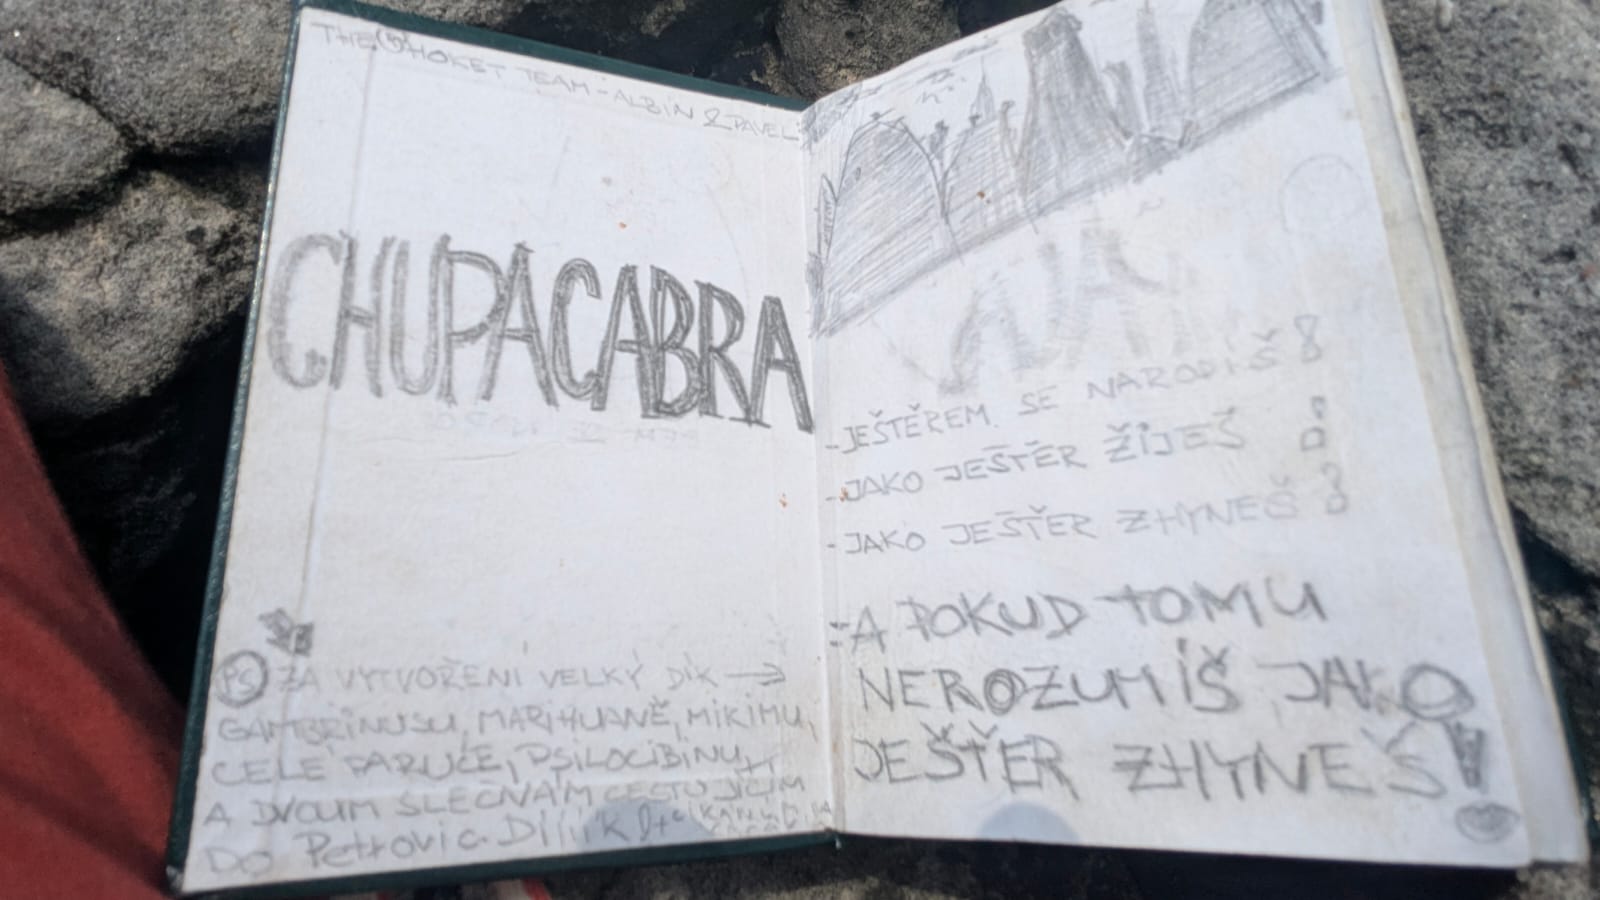 THE HOKET TEAM - ALBIN & PAVEL:
CHUPACABRA
PS ZA VYTVOŘENI VELKÝ DÍK →
GAMBRINUSU, MARIHUANĚ, MIKIMU,
CELÉ PARUČE, PSILOCIBINU,
A DVOUM SLEČNÁM CESTUJÍCÍM
DO Petrovic. Dííík
- JEŠTĚREM SE NARODÍŠ
- JAKO JEŠTĚR ŽIJEŠ
- JAKO JEŠTĚR ZHYNEŠ
: A POKUD TOMU
NEROZUMÍŠ JAKO
JEŠTĚR ZHYNEŠ!